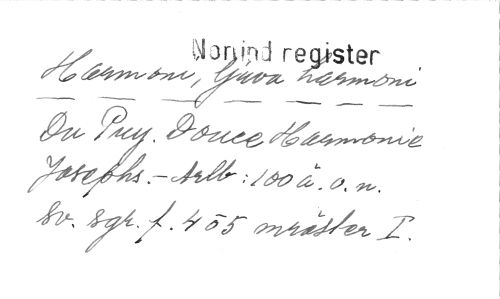 Nonind register
Harmoni, ljuva harmoni
Du Puy. Douce Harmonie
Josephs.- Arlb: 100 ä. o. n.
Sv. sgr. f. 4 o 5 mröster I.